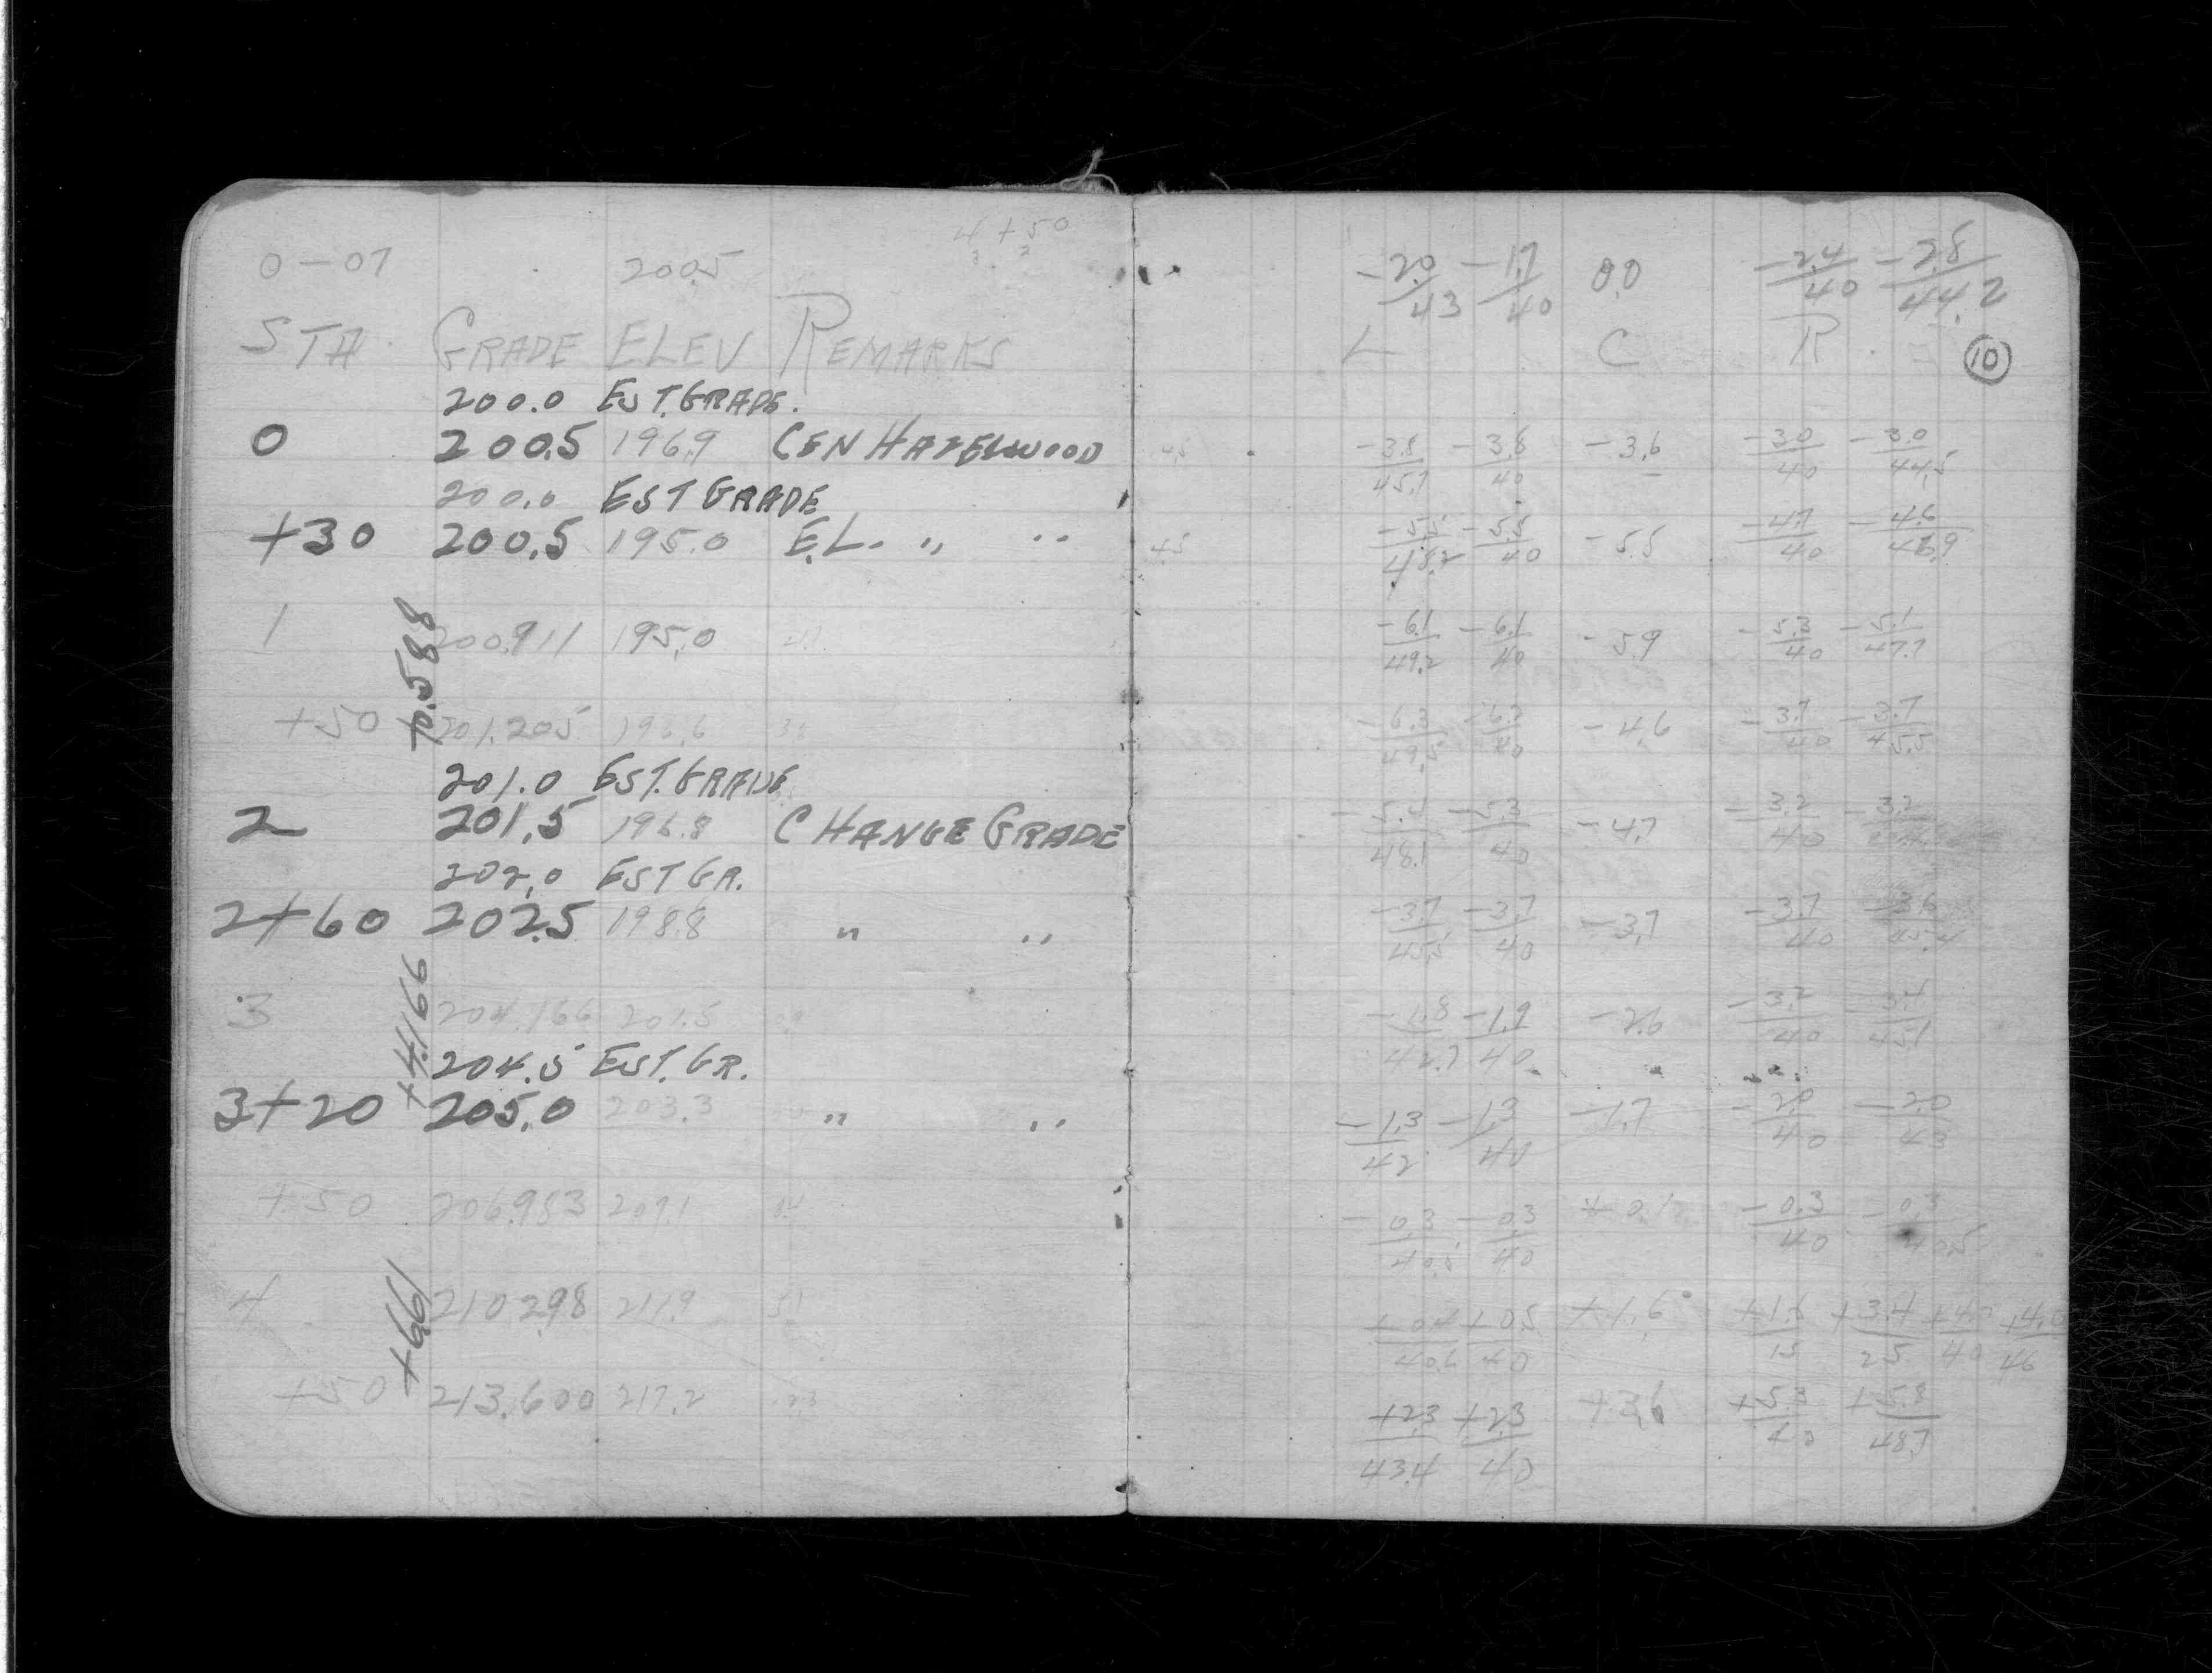 4+50
0-07 200.5 -2.0/43 -1.7/40 0.0 -2.4/40 -2.8/44.2
STA GRADE ELEV REMARKS L C R 10
200.0 EST. GRADE.
0 200.5 196.9 CEN HAZELWOOD -3.8/45.7 -3.8/40 -3.6 -3.0/40 -3.0/44.5
200.0 EST GRADE
+30 200.5 195.0 E.L. " " -5.5/48.2 -5.5/40 -5.5 -4.7/40 -4.6/46.9
1 200.911 195.0 -6.1/49.2 -6.1/40 -5.9 -5.3/40 -5.1/47.7
+0.588
+50 201.205 196.6 -6.3/49.5 -6.3/40 -4.6 -3.7/40 -3.7/45.5
201.0 EST. GRADE
2 201.5 196.8 CHANGE GRADE 48.1 -5.3/40 -4.7 -3.2/40 -3.2
202.0 EST GR.
2+60 202.5 198.8 " " -3.7/45.5 -3.7/40 -3.7 -3.7/40 -3.6/45.4
3 204.166 201.5 -1.8/42.7 -1.9/40 -2.6 -3.2/40 -3.4/45.1
+4.166
204.5 EST. GR.
3+20 205.0 203.3 " " -1.3/42 -1.3/40 -1.7 -2.0/40 -2.0/43
+50 206.983 207.1 -0.3/40.5 -0.3/40 +0.1 -0.3/40 -0.3/40.5
4 210.298 211.9 +0.4/40.6 +0.5/40 +1.6 +1.6/15 +3.4/25 +4.0/40 +4.0/46
+6.61
+50 213.600 217.2 +2.3/43.4 +2.3/40 +3.6 +5.3/40 +5.8/48.7